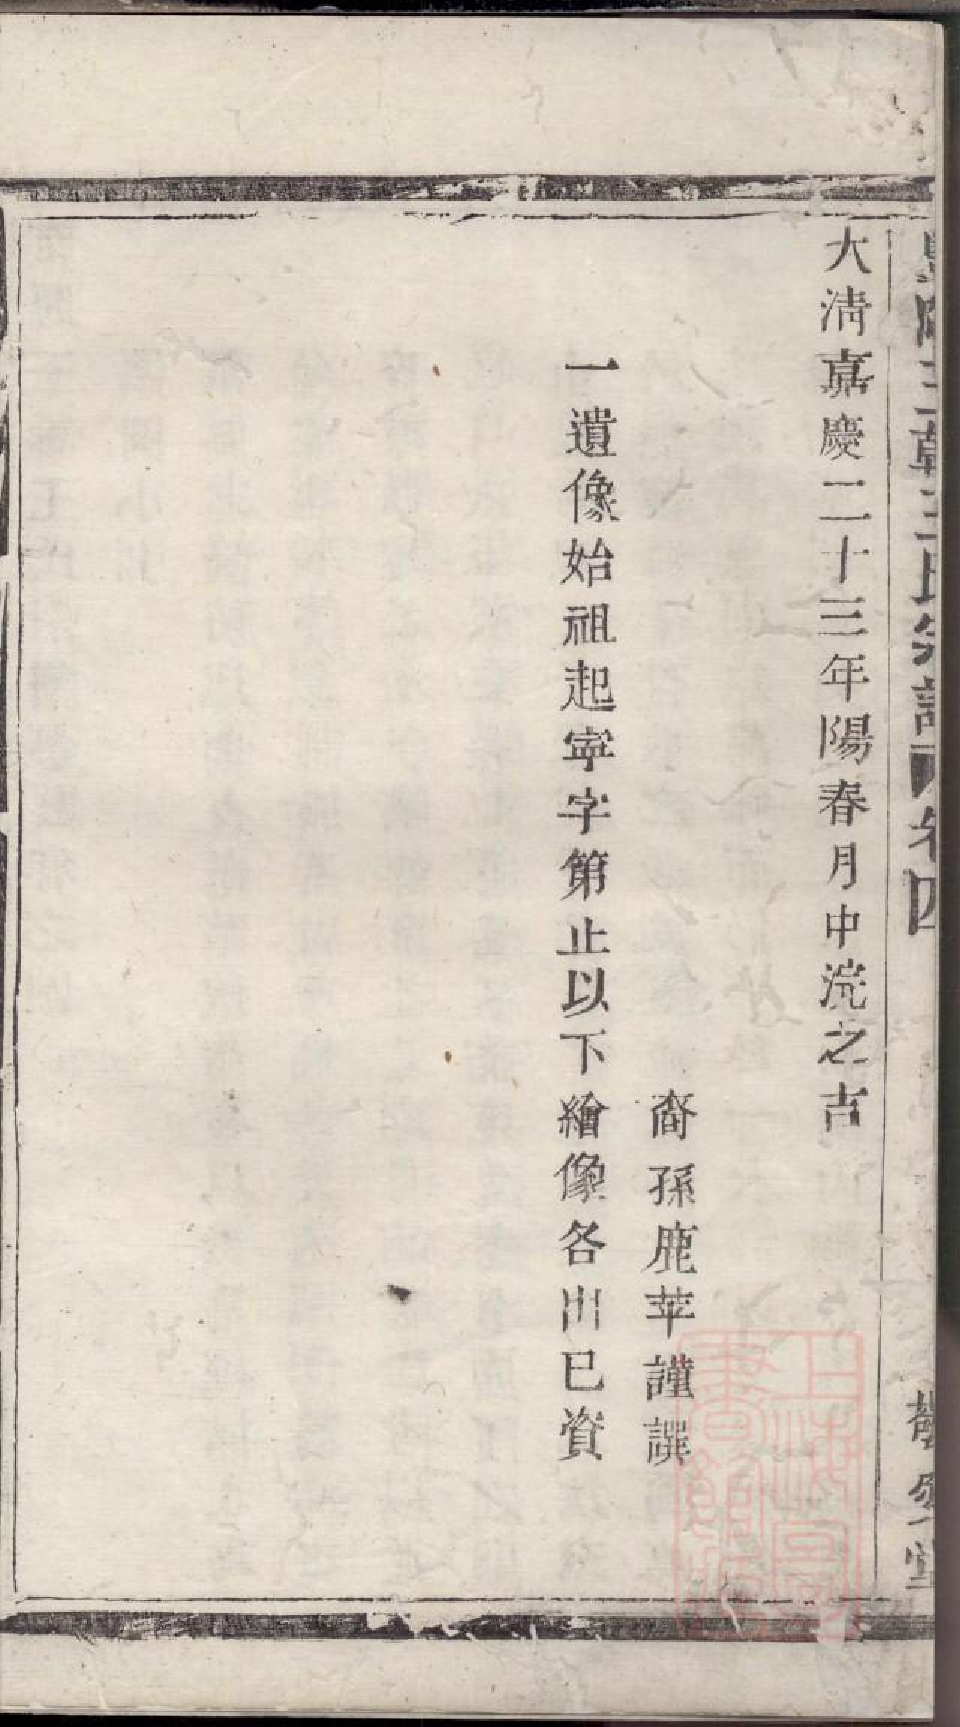 大清嘉慶二十三年陽春月中浣之吉
裔孫鹿苹謹譔
一遺像始祖起寧字第止以下繪像各出已資
王氏宗譜 卷四